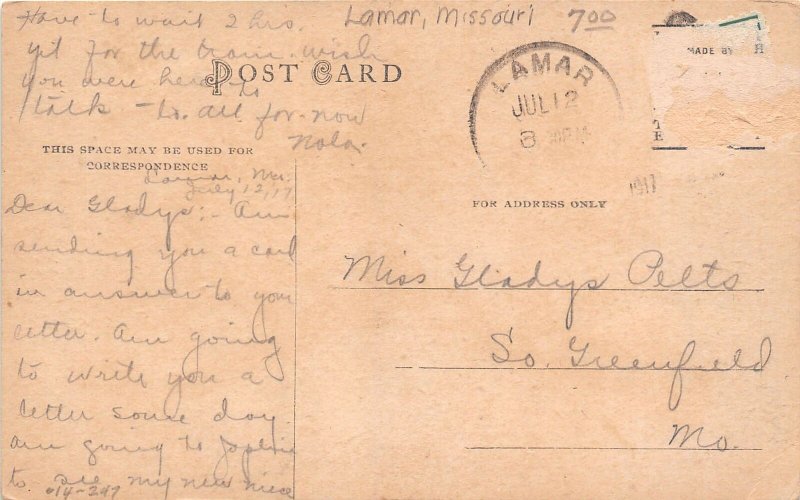 Have to wait 2 hrs.
yet for the train. wish
you were here to
talk - to. all for now
Nola.
Lamar, Missouri
7.00
POST CARD
LAMAR
JUL 12
8 PM
1917
MADE BY
THIS SPACE MAY BE USED FOR
CORRESPONDENCE
FOR ADDRESS ONLY
Lamar, Mo.
July 12, 17
Dear Gladys:- Am
sending you a card
in answer to your
letter. Am going
to write you a
letter some day.
am going to Joplin
to see my new niece
014-247
Miss Gladys Pelts
So. Greenfield
Mo.